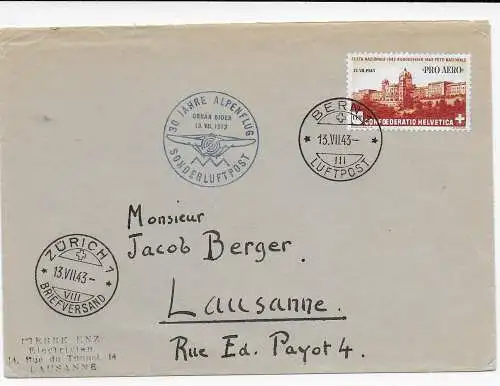 13.VII.1943
·PRO AERO·
CONFOEDERATIO HELVETICA
BERN
13.VII.43–
III
LUFTPOST
30 JAHRE ALPENFLUG
OSKAR BIDER
13. VII. 1913
SONDERLUFTPOST
Monsieur
Jacob Berger.
Lausanne.
Rue Ed. Payot 4.
ZÜRICH 1
13.VII.43–
VIII
BRIEFVERSAND
PIERRE ENZ
Electricien
14, Rue du Tunnel 14
LAUSANNE